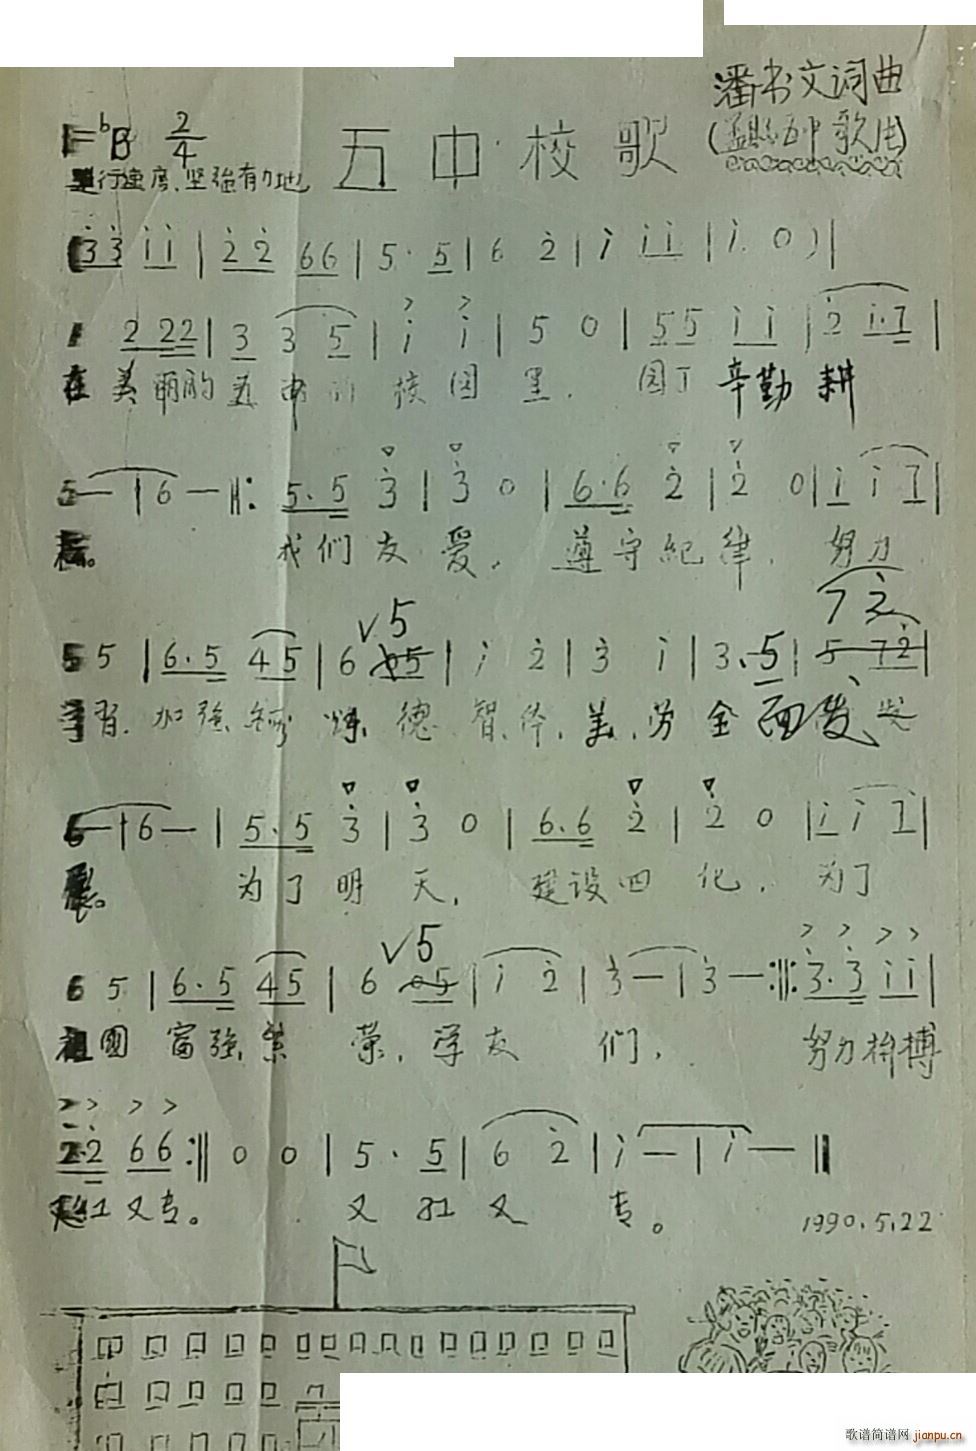 潘书文词曲
1=ᵇB 2/4
五中校歌
进行速度、坚强有力地
(3̇3̇ 1̇1̇ | 2̇2̇ 66 | 5· 5 | 6 2̇ | 1̇ 1̇1̇ | 1̇ 0 ) |
1 222 | 3 3 5 | 1̇ 1̇ | 5 0 | 55 1̇1̇ | 2̇ 1̇·7 |
在美丽的五中的校园里. 园丁辛勤耕
5— | 6 — ‖: 5·5 3̇ | 3̇ 0 | 6·6 2̇ | 2̇ 0 | 1̇ 1̇ 7 |
耘。 我们友爱. 遵守纪律. 努力
√5 7 2̇
5 5 | 6·5 45 | 6 05 | 1̇ 2̇ | 3̇ 1̇ | 3·5 | 5 72̇ |
学习. 加强锻炼. 德.智.体.美.劳全面发 发
6— | 6— | 5·5 3̇ | 3̇ 0 | 6·6 2̇ | 2̇ 0 | 1̇ 1̇ 7 |
展。 为了明天. 建设四化. 为了
√5
6 5 | 6·5 45 | 6 05 | 1̇ 2̇ | 3̇— | 3̇— :‖: 3̇·3̇ 1̇1̇ |
祖國富强繁荣. 学友们. 努力拚搏
2̇·2̇ 66 :‖ 0 0 | 5· 5 | 6 2̇ | 1̇— | 1̇— ‖
又红又专。 又红又专。
1990.5.22
歌谱简谱网 jianpu.cn